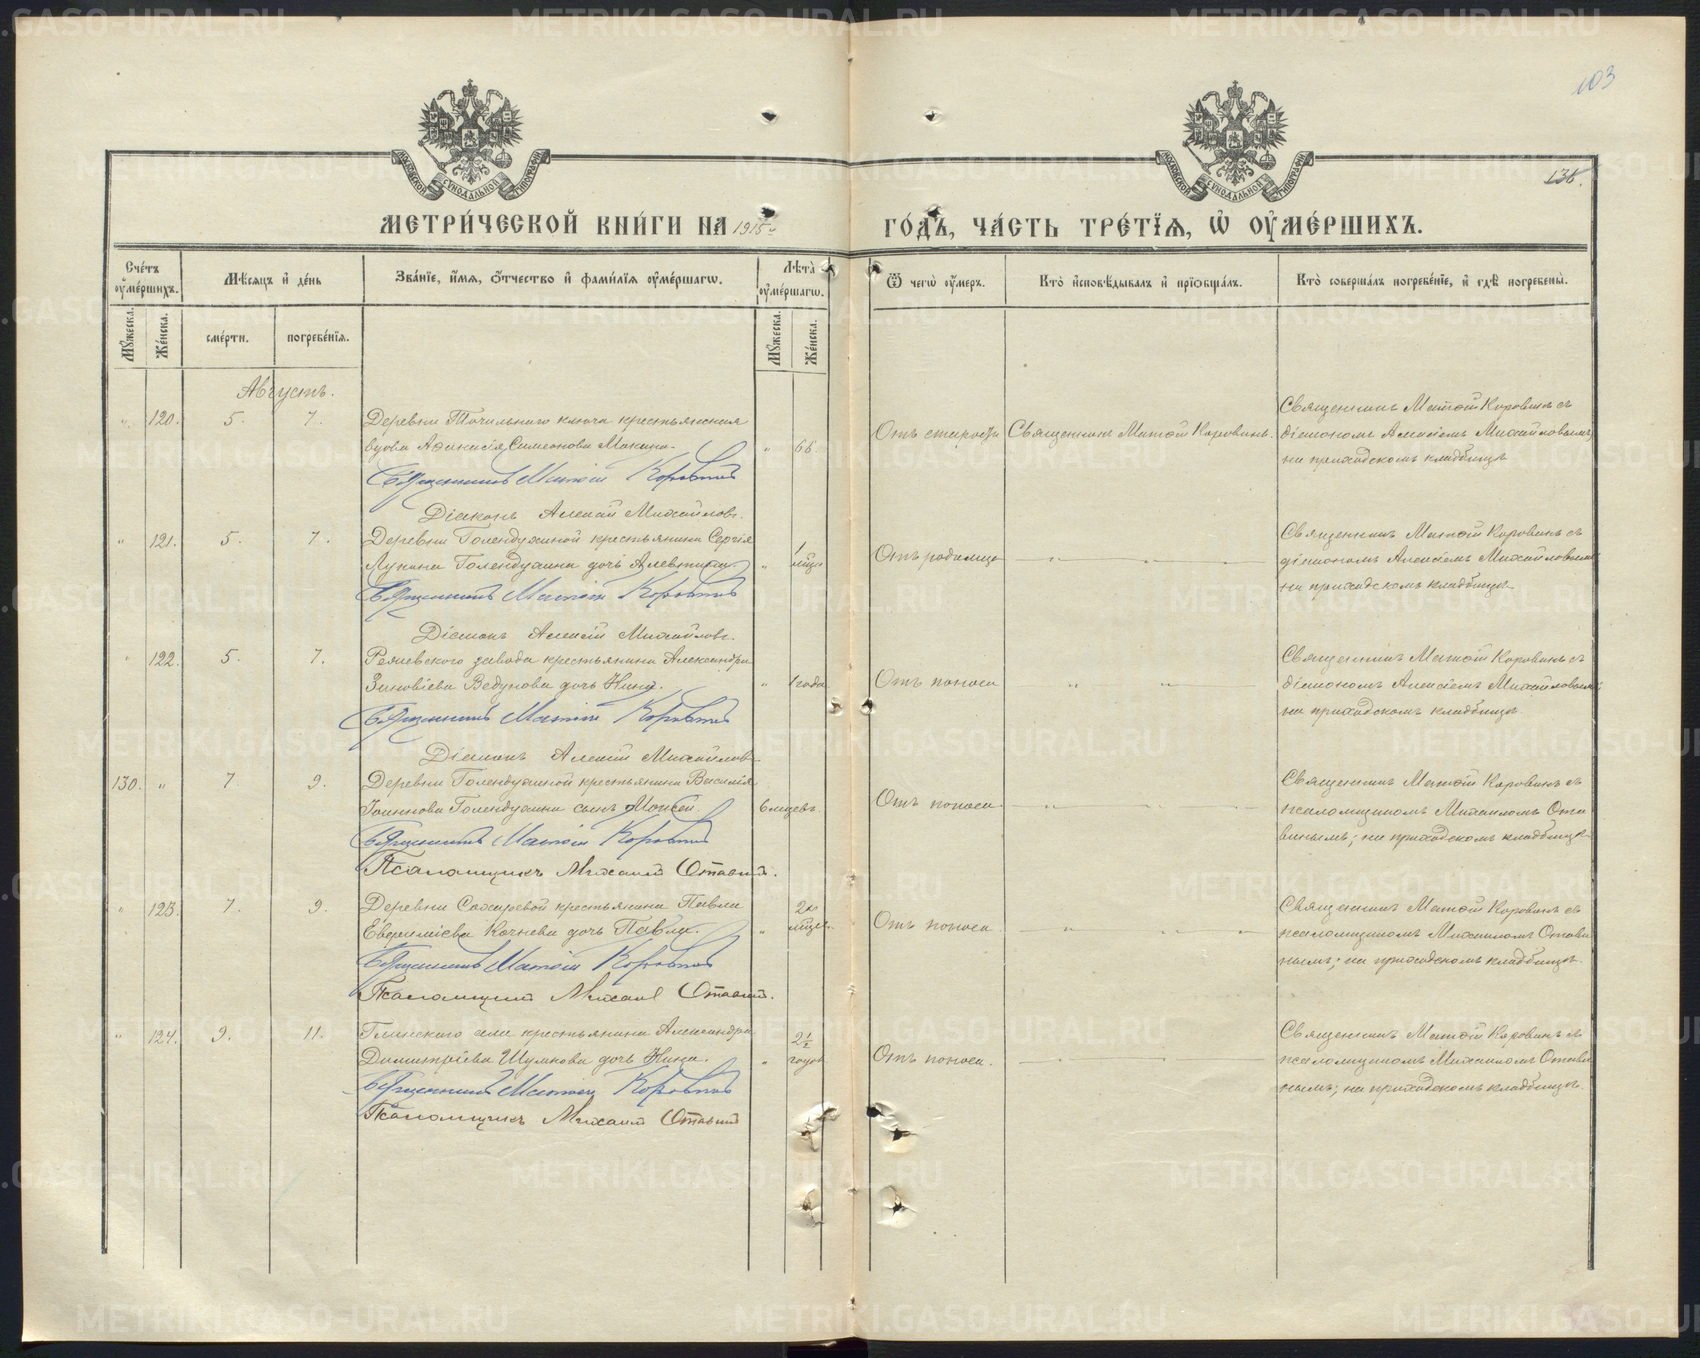 103
138.
МОСКОВСКОЙ СѴНОДАЛЬНОЙ ТИПОГРАФІИ
МОСКОВСКОЙ СѴНОДАЛЬНОЙ ТИПОГРАФІИ
МЕТРИ́ЧЕСКОЙ КНИ́ГИ НА 1915 г. ГО́ДЪ, ЧА́СТЬ ТРЕ́ТЇѦ, Ѡ ОУ҆МЕ́РШИХЪ.
Сче́тъ оу҆ме́ршихъ.
Мѣ́сяцъ и҆ де́нь
Зва́нїе, и҆́мѧ, ѻ҆́тчество и҆ фами́лїѧ оу҆ме́ршагѡ.
Лѣ́та оу҆ме́ршагѡ.
Ѿ чегѡ̀ оу҆́меръ.
Кто̀ и҆сповѣ́дывалъ и҆ прїѡбща́лъ.
Кто̀ соверша́лъ погребе́нїе, и҆ гдѣ̀ погребены̀.
Мꙋ́жеска. Же́нска.
сме́рти.
погребе́нїѧ.
Мꙋ́жеска. Же́нска.
Августъ.
" 120. 5. 7. Деревни Точильнаго ключа крестьянская
вдова Афанасія Симеонова Макина. " 66.
Священникъ Матѳій Коровинъ
Діаконъ Алексій Михайловъ.
Отъ старости Священникъ Матѳій Коровинъ.
Священникъ Матѳій Коровинъ съ
діакономъ Алексіемъ Михайловымъ
на приходскомъ кладбищѣ
" 121. 5. 7. Деревни Голендухиной крестьянина Сергія
Лукина Голендухина дочь Алевтина. " 1 мѣс.
Священникъ Матѳій Коровинъ
Діаконъ Алексій Михайловъ.
Отъ родимца " "
Священникъ Матѳій Коровинъ съ
діакономъ Алексіемъ Михайловымъ
на приходскомъ кладбищѣ
" 122. 5. 7. Режевского завода крестьянина Александра
Зиновіева Ведунова дочь Нина. " 1 года
Священникъ Матѳій Коровинъ
Діаконъ Алексій Михайловъ
Отъ поноса " "
Священникъ Матѳій Коровинъ съ
діакономъ Алексіемъ Михайловымъ
на приходскомъ кладбищѣ
130. " 7 9. Деревни Голендухиной крестьянина Василія
Іоаннова Голендухина сынъ Моисей. 6 мѣсевъ.
Священникъ Матѳій Коровинъ
Псаломщикъ Михаилъ Ставин.
Отъ поноса " "
Священникъ Матѳій Коровинъ съ
псаломщикомъ Михаиломъ Ста
винымъ; на приходскомъ кладбищѣ
" 123. 7. 9. Деревни Сохаревой крестьянина Павла
Евфиміева Кочнева дочь Павла. " 2хъ мѣсев.
Священникъ Матѳій Коровинъ
Псаломщикъ Михаилъ Ставин.
Отъ поноса " "
Священникъ Матѳій Коровинъ съ
псаломщикомъ Михаиломъ Стави
нымъ; на приходскомъ кладбищѣ.
" 124. 9. 11. Глинскаго села крестьянина Александра
Димитріева Шумкова дочь Нина. " 2½ годов
Священникъ Матѳій Коровинъ
Псаломщикъ Михаилъ Ставин
Отъ поноса. " "
Священникъ Матѳій Коровинъ съ
псаломщикомъ Михаиломъ Стави
нымъ; на приходскомъ кладбищѣ.
METRIKI.GASO-URAL.RU